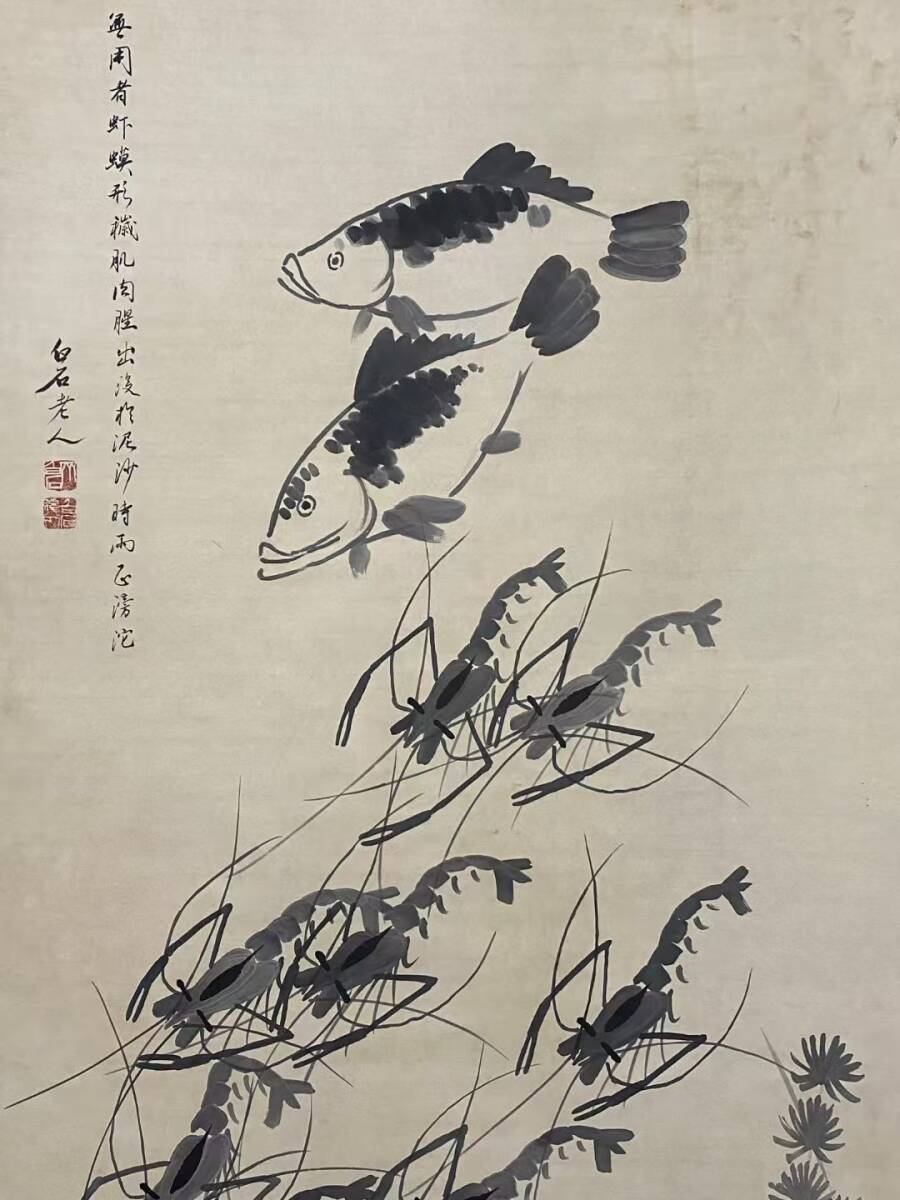 無用者虾蟆形穢肌肉腥出没於泥沙時雨正滂沱
白石老人